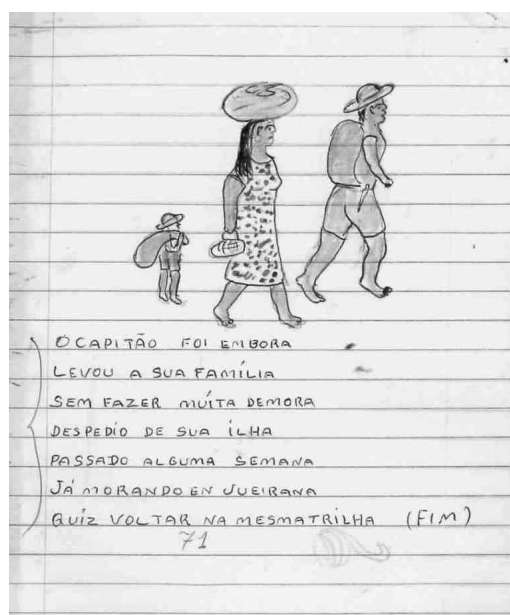 O CAPITÃO FOI EMBORA
LEVOU A SUA FAMÍLIA
SEM FAZER MUÍTA DEMORA
DESPEDÍO DE SUA ÍLHA
PASSADO ALGUMA SEMANA
JÁ MORANDO EN JUEIRANA
QUIZ VOLTAR NA MESMATRILHA (FIM)
71